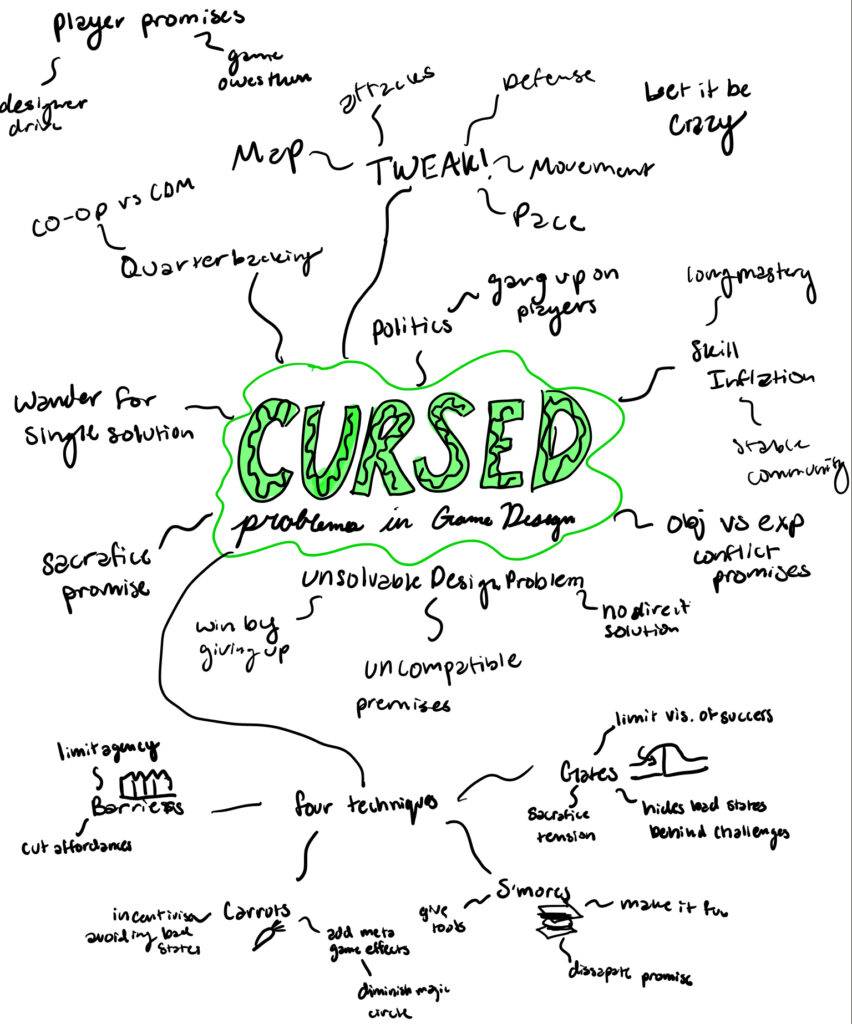 player promises
game
owes them
designer
drive
attacks
Defense
Let it be
crazy
Map
TWEAK!
Movement
Pace
CO-OP vs COM
Quarterbacking
politics
gang up on
players
long mastery
Skill
Inflation
stable
community
Wander for
single solution
CURSED
problems in Game Design
Sacrafice
promise
obj vs exp
conflict
promises
unsolvable Design Problem
win by
giving up
no direct
solution
uncompatible
premises
limit agency
Barriers
cut affordances
four techniques
limit vis. of success
Gates
Sacrafice
tension
hides bad states
behind challenges
Carrots
incentivise
avoiding bad
states
add meta
game effects
diminish magic
circle
S'mores
give
tools
make it fun
dissapate promise